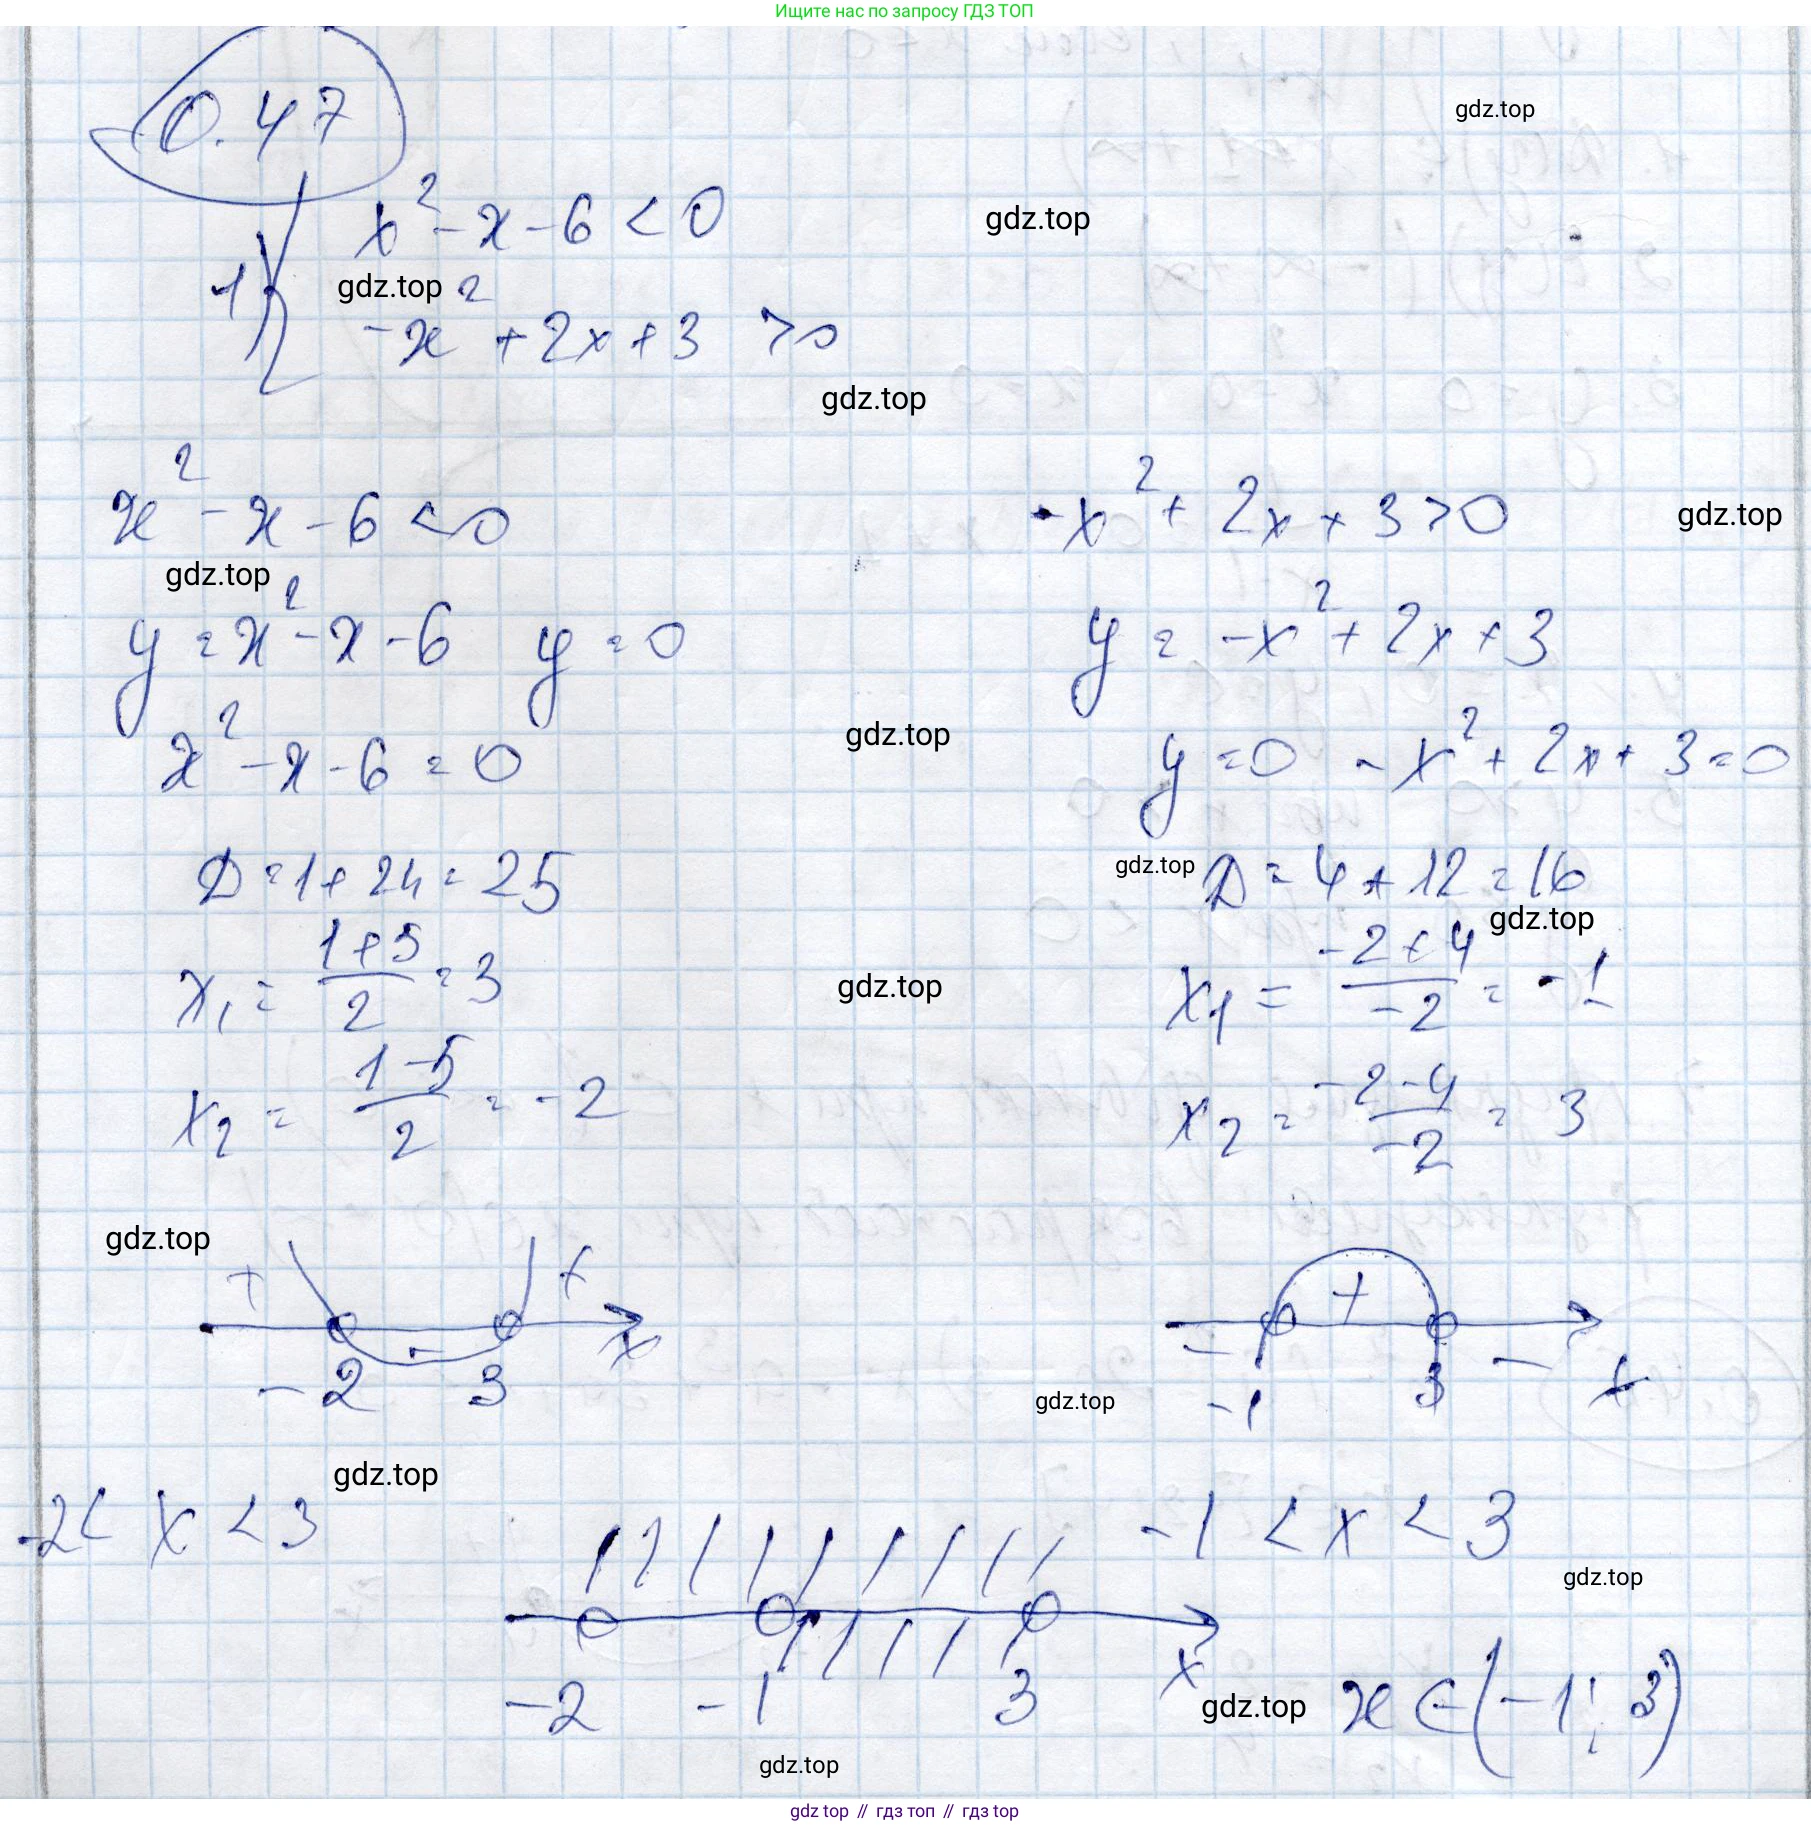 Ищите нас по запросу ГДЗ ТОП
0.47
gdz.top
x² - x - 6 < 0
gdz.top
1)
gdz.top
-x² + 2x + 3 > 0
gdz.top
x² - x - 6 < 0
-x² + 2x + 3 > 0
gdz.top
gdz.top
y = x² - x - 6 y = 0
y = -x² + 2x + 3
gdz.top
x² - x - 6 = 0
y = 0 -x² + 2x + 3 = 0
D = 1 + 24 = 25
gdz.top
D = 4 + 12 = 16
gdz.top
x₁ = (1+5)/2 = 3
gdz.top
x₁ = (-2+4)/-2 = -1
x₂ = (1-5)/2 = -2
x₂ = (-2-4)/-2 = 3
gdz.top
+ - + x
-2 3
- + - x
-1 3
gdz.top
gdz.top
-2 < x < 3
-1 < x < 3
gdz.top
-2 -1 3 x
gdz.top
x ∈ (-1; 3)
gdz.top
gdz top // гдз топ // гдз top